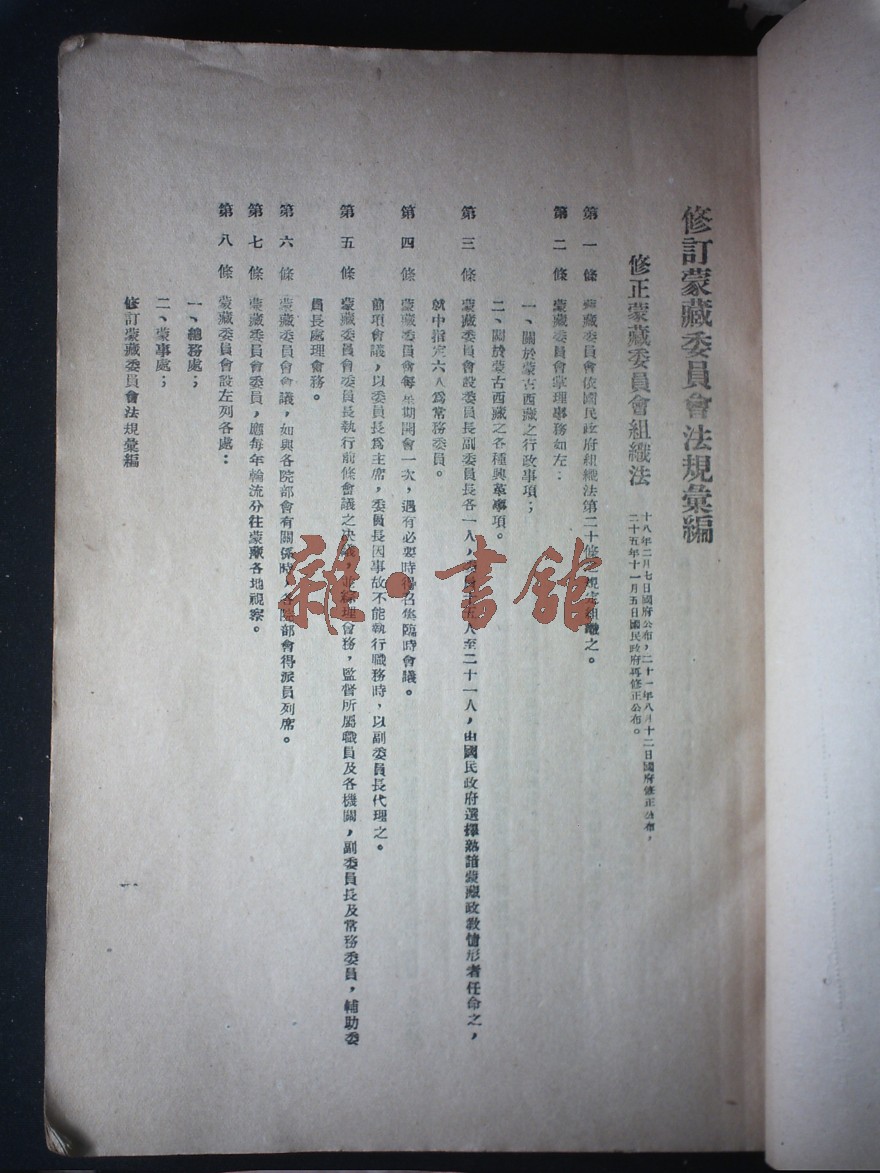 修訂蒙藏委員會法規彙編
修正蒙藏委員會組織法
十八年二月七日國府公布，二十一年八月十二日國府修正公布，
二十五年十一月五日國民政府再修正公布。
第一條 蒙藏委員會依國民政府組織法第二十條之規定組織之。
第二條 蒙藏委員會掌理事務如左：
一、關於蒙古西藏之行政事項；
二、關於蒙古西藏之各種興革事項。
第三條 蒙藏委員會設委員長副委員長各一人，委員十五人至二十一人，由國民政府選擇熟諳蒙藏政教情形者任命之，
就中指定六人爲常務委員。
第四條 蒙藏委員會每星期開會一次，遇有必要時得召集臨時會議。
前項會議，以委員長爲主席，委員長因事故不能執行職務時，以副委員長代理之。
第五條 蒙藏委員會委員長執行前條會議之决議，並綜理會務，監督所屬職員及各機關，副委員長及常務委員，輔助委
員長處理會務。
第六條 蒙藏委員會會議，如與各院部會有關係時，各院部會得派員列席。
第七條 蒙藏委員會委員，應每年輪流分往蒙藏各地視察。
第八條 蒙藏委員會設左列各處：
一、總務處；
二、蒙事處；
修訂蒙藏委員會法規彙編
一
雜·書館